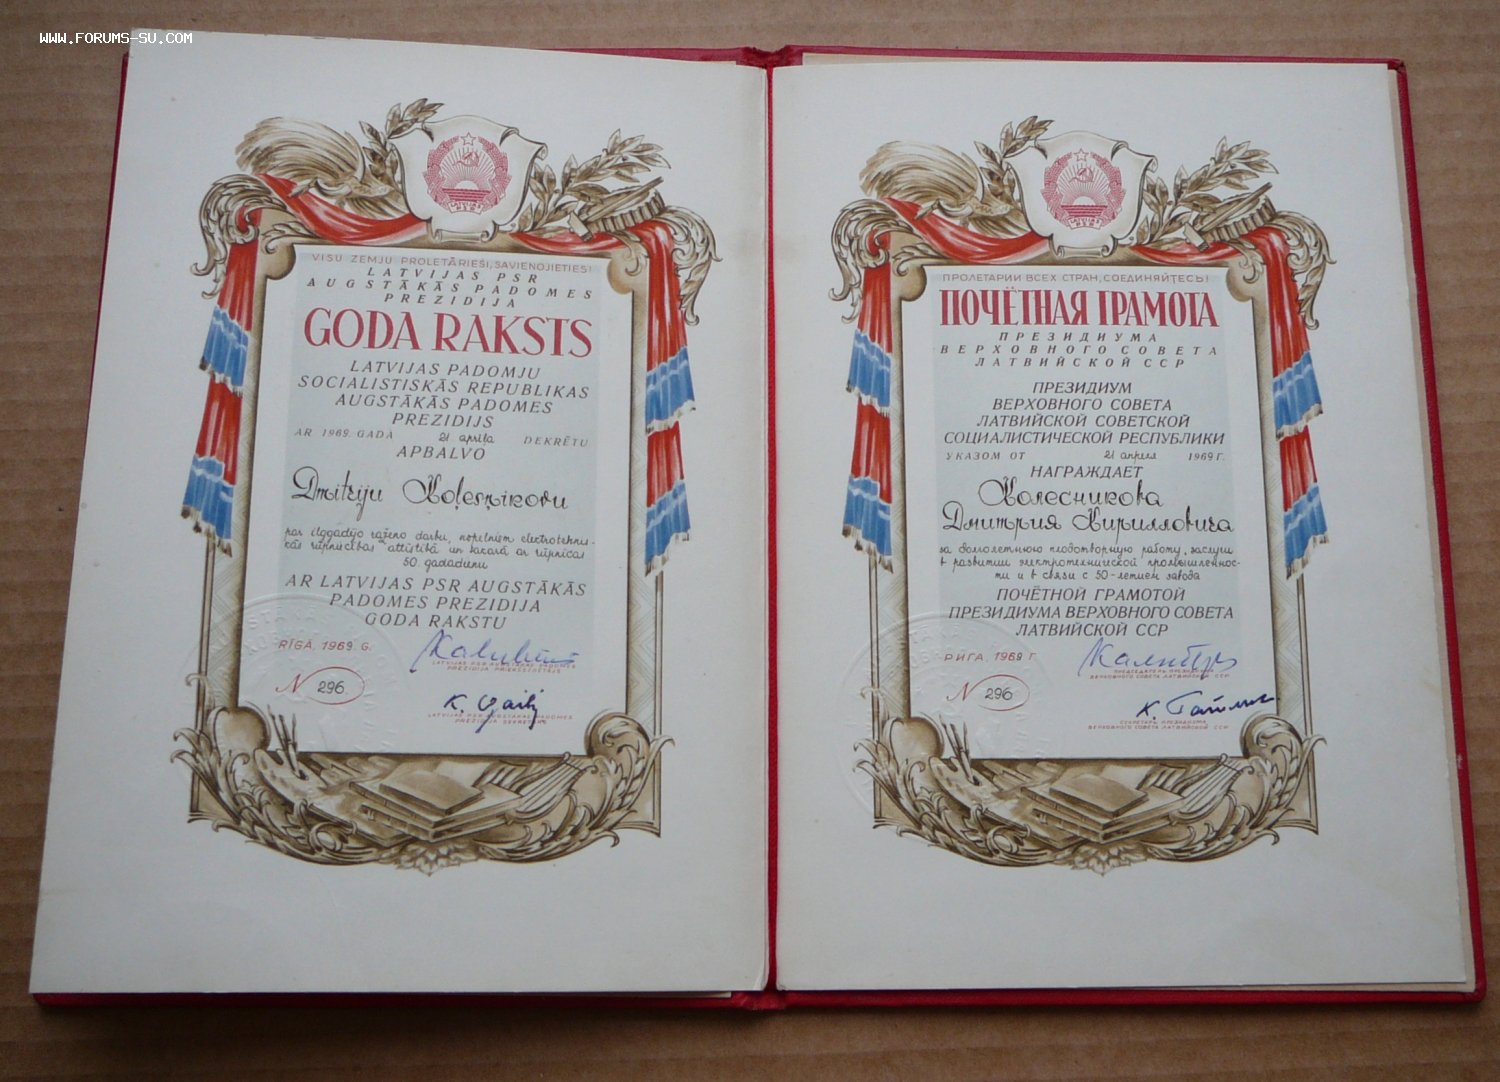 WWW.FORUMS-SU.COM
LATVIJAS
PSR
VISU ZEMJU PROLETĀRIEŠI, SAVIENOJIETIES!
LATVIJAS PSR
AUGSTĀKĀS PADOMES
PREZIDIJA
GODA RAKSTS
LATVIJAS PADOMJU
SOCIALISTISKĀS REPUBLIKAS
AUGSTĀKĀS PADOMES
PREZIDIJS
AR 1969. GADA 21 aprīļa DEKRĒTU
APBALVO
Dmitriju Koļesņikovu
par ilggadējo raženo darbu, nopelniem electrotehnis-
kās rūpniecības attīstībā un sakarā ar rūpnīcas
50. gadadienu
AR LATVIJAS PSR AUGSTĀKĀS
PADOMES PREZIDIJA
GODA RAKSTU
RĪGĀ, 1969. G.
LATVIJAS PSR AUGSTĀKĀS PADOMES
PREZIDIJA PRIEKŠSĒDĒTĀJS
N 296.
LATVIJAS PSR AUGSTĀKĀS PADOMES
PREZIDIJA SEKRETĀRS
LATVIJAS
PSR
ПРОЛЕТАРИИ ВСЕХ СТРАН, СОЕДИНЯЙТЕСЬ!
ПОЧЁТНАЯ ГРАМОТА
ПРЕЗИДИУМА
ВЕРХОВНОГО СОВЕТА
ЛАТВИЙСКОЙ ССР
ПРЕЗИДИУМ
ВЕРХОВНОГО СОВЕТА
ЛАТВИЙСКОЙ СОВЕТСКОЙ
СОЦИАЛИСТИЧЕСКОЙ РЕСПУБЛИКИ
УКАЗОМ ОТ 21 апреля 1969 г.
НАГРАЖДАЕТ
Колесникова
Дмитрия Кирилловича
за долголетнюю плодотворную работу, заслуги
в развитии электротехнической промышленнос-
ти и в связи с 50-летием завода
ПОЧЁТНОЙ ГРАМОТОЙ
ПРЕЗИДИУМА ВЕРХОВНОГО СОВЕТА
ЛАТВИЙСКОЙ ССР
РИГА, 1969 Г.
ПРЕДСЕДАТЕЛЬ ПРЕЗИДИУМА
ВЕРХОВНОГО СОВЕТА ЛАТВИЙСКОЙ ССР
N 296
СЕКРЕТАРЬ ПРЕЗИДИУМА
ВЕРХОВНОГО СОВЕТА ЛАТВИЙСКОЙ ССР